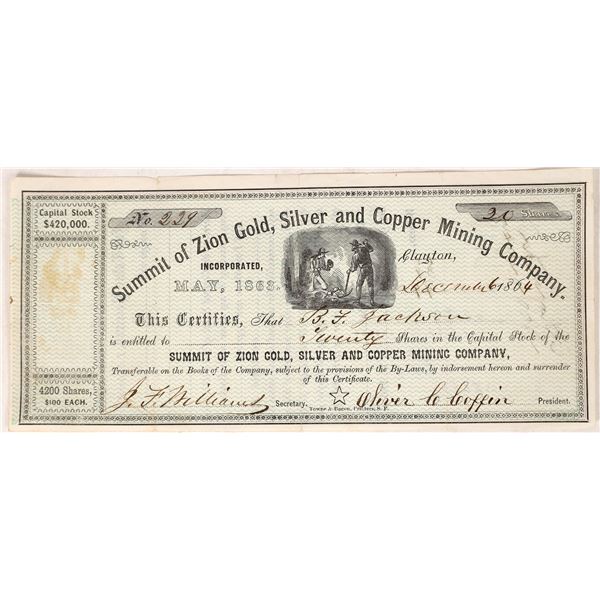 Capital Stock
$420,000.
No. 229
20 Shares
Summit of Zion Gold, Silver and Copper Mining Company.
INCORPORATED,
MAY, 1863.
Clayton,
1864
This Certifies, That B. F. Jackson
is entitled to Twenty Shares in the Capital Stock of the
SUMMIT OF ZION GOLD, SILVER AND COPPER MINING COMPANY,
Transferable on the Books of the Company, subject to the provisions of the By-Laws, by indorsement hereon and surrender
of this Certificate.
4200 Shares,
$100 EACH.
J. F. Williams Secretary. Oliver C Coffin President.
Towne & Bacon, Printers, S. F.